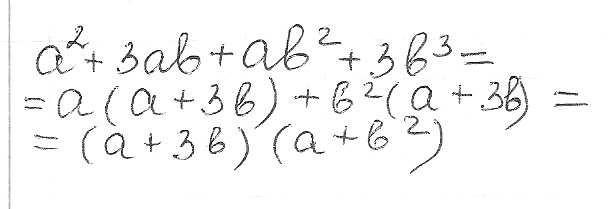 a² + 3ab + ab² + 3b³ =
= a(a + 3b) + b²(a + 3b) =
= (a + 3b)(a + b²)